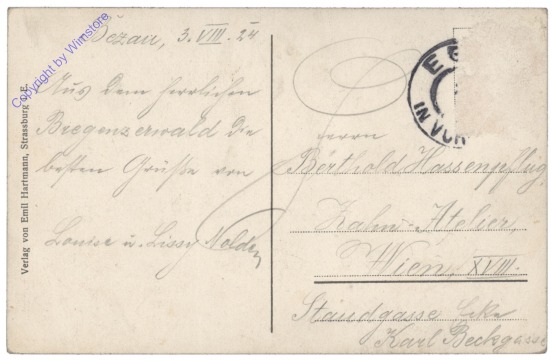 Bezau, 3. VIII. 24
Aus dem herrlichen
Bregenzerwald die
besten Grüße von
Louise u. Lissy
Herrn
Berthold Hassenpflug,
Zahn-Atelier,
Wien, XVIII.
Staudgasse Ecke
Karl Beckgasse
IN VOR
Verlag von Emil Hartmann, Strassburg i. E.
Copyright by Wimstore